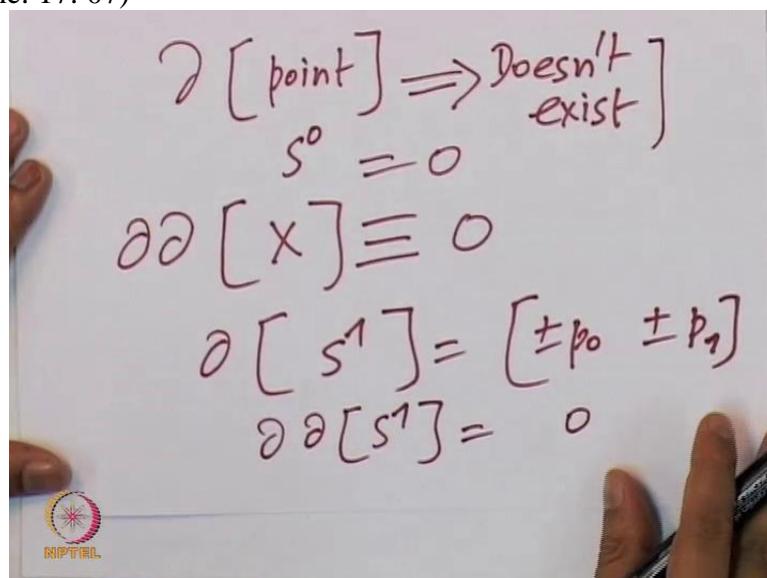 17: 07)
∂ [point] ⟹ Doesn't exist]
s⁰ = 0
∂∂ [X] ≡ 0
∂ [s¹] = [±p₀ ±p₁]
∂∂[s¹] = 0
NPTEL